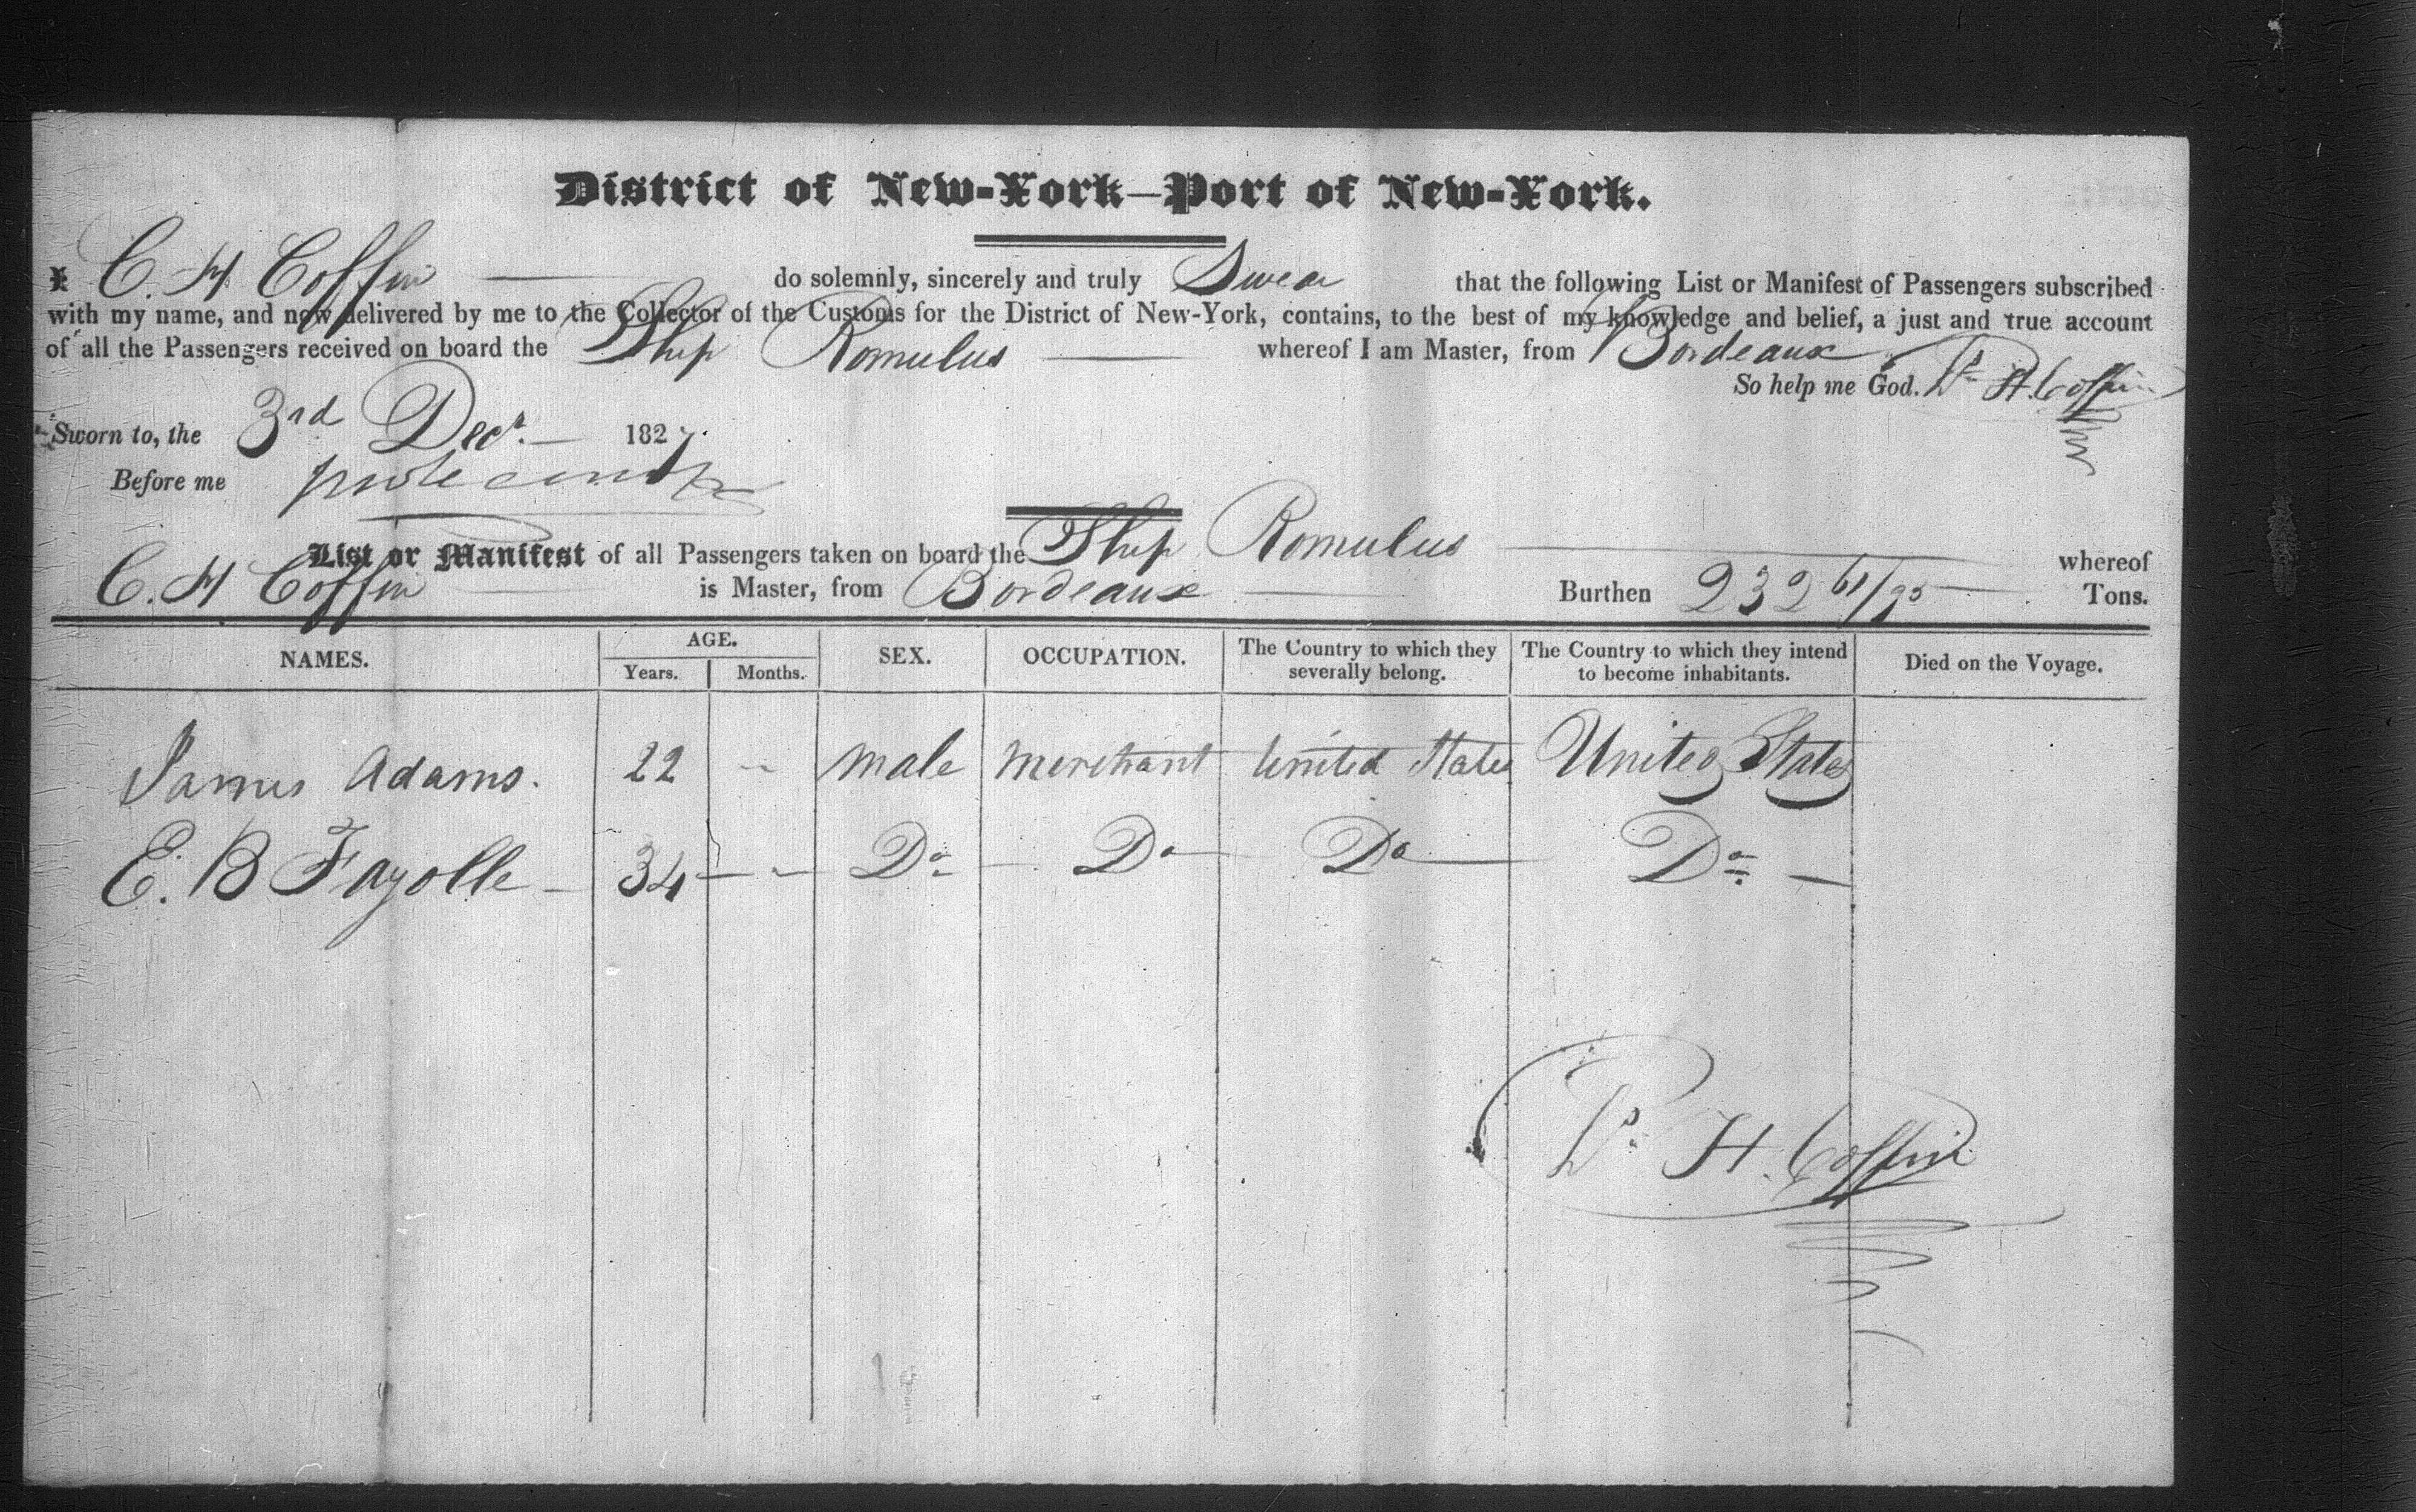 District of New-York—Port of New-York.
I C. H Coffin do solemnly, sincerely and truly Swear that the following List or Manifest of Passengers subscribed
with my name, and now delivered by me to the Collector of the Customs for the District of New-York, contains, to the best of my knowledge and belief, a just and true account
of all the Passengers received on board the Ship Romulus whereof I am Master, from Bordeaux
So help me God. H. Coffin
Sworn to, the 3rd Decr. 1827.
Before me
List or Manifest of all Passengers taken on board the Ship Romulus whereof
C. H Coffin is Master, from Bordeaux Burthen 232 61/95 Tons.
NAMES. AGE. SEX. OCCUPATION. The Country to which they severally belong. The Country to which they intend to become inhabitants. Died on the Voyage.
Years. Months.
James Adams. 22 " male merchant United States United States
E. B Fayolle 34 - " Do Do Do Do
H. Coffin